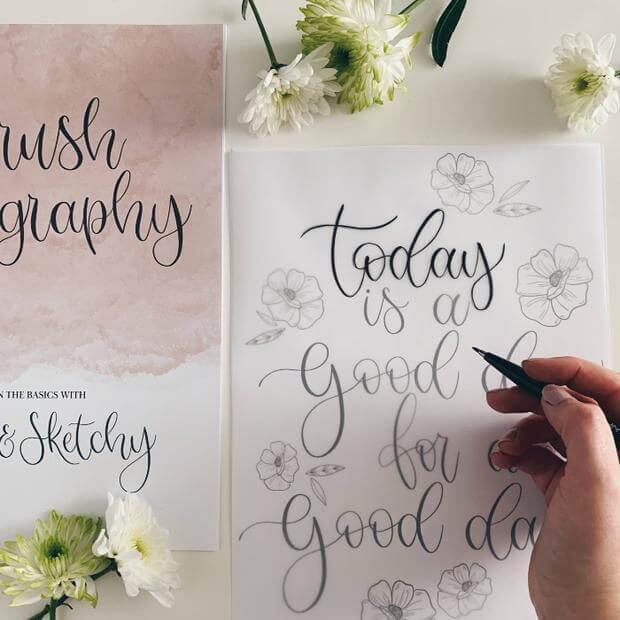 rush
graphy
N THE BASICS WITH
& Sketchy
Today
is a
Good d
for a
Good da